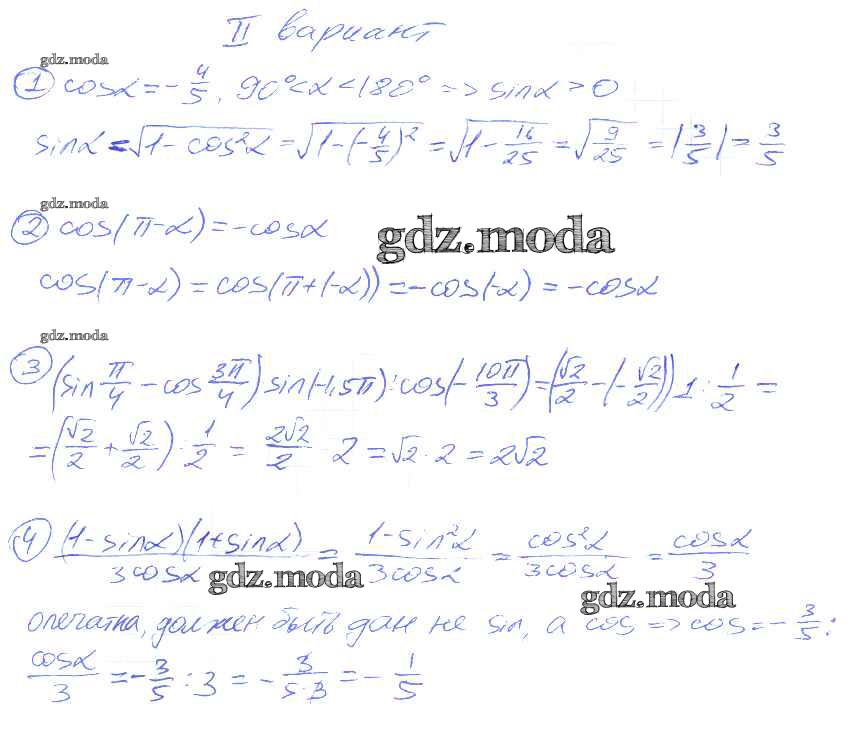 II вариант
gdz.moda
① cosα = -4/5, 90° < α < 180° => sinα > 0
sinα = √(1 - cos²α) = √(1 - (-4/5)²) = √(1 - 16/25) = √(9/25) = |3/5| = 3/5
gdz.moda
② cos(π-α) = -cosα
gdz.moda
cos(π-α) = cos(π+(-α)) = -cos(-α) = -cosα
gdz.moda
③ (sin π/4 - cos 3π/4) sin(-1,5π) : cos(-10π/3) = (√2/2 - (-√2/2)) 1 : 1/2 =
= (√2/2 + √2/2) : 1/2 = 2√2/2 · 2 = √2 · 2 = 2√2
④ (1-sinα)(1+sinα)/3cosα = 1-sin²α/3cosα = cos²α/3cosα = cosα/3
gdz.moda
gdz.moda
опечатка, должен быть дан не sin, а cos => cos = -3/5:
cosα/3 = -3/5 : 3 = -3/5·3 = -1/5